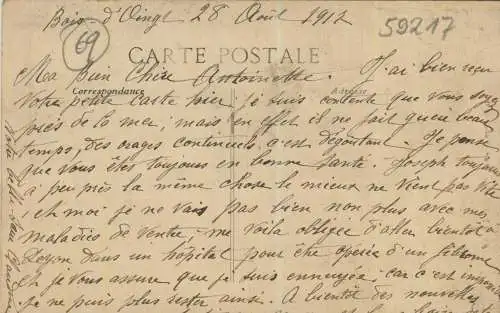 Bois d'Oingt 28 Août 1912
59217
69
CARTE POSTALE
Ma bien Chère Antoinette. J'ai bien reçu
Correspondance Adresse
Votre petite carte hier je suis contente que vous soyez
près de la mer, mais en effet il ne fait guère beau
temps, des orages continuels c'est dégoutant. Je pense
que vous êtes toujours en bonne santé. Joseph toujours
a peu près la même chose le mieux ne vient pas vite
et moi je ne vais pas bien non plus avec mes
maladies de ventre, me voila obligée d'aller bientôt à
Lyon dans un hôpital pour être opérée d'un fibrome
et je vous assure que je suis ennuyée, car c'est
je ne puis plus rester ainsi. A bientôt des nouvelles